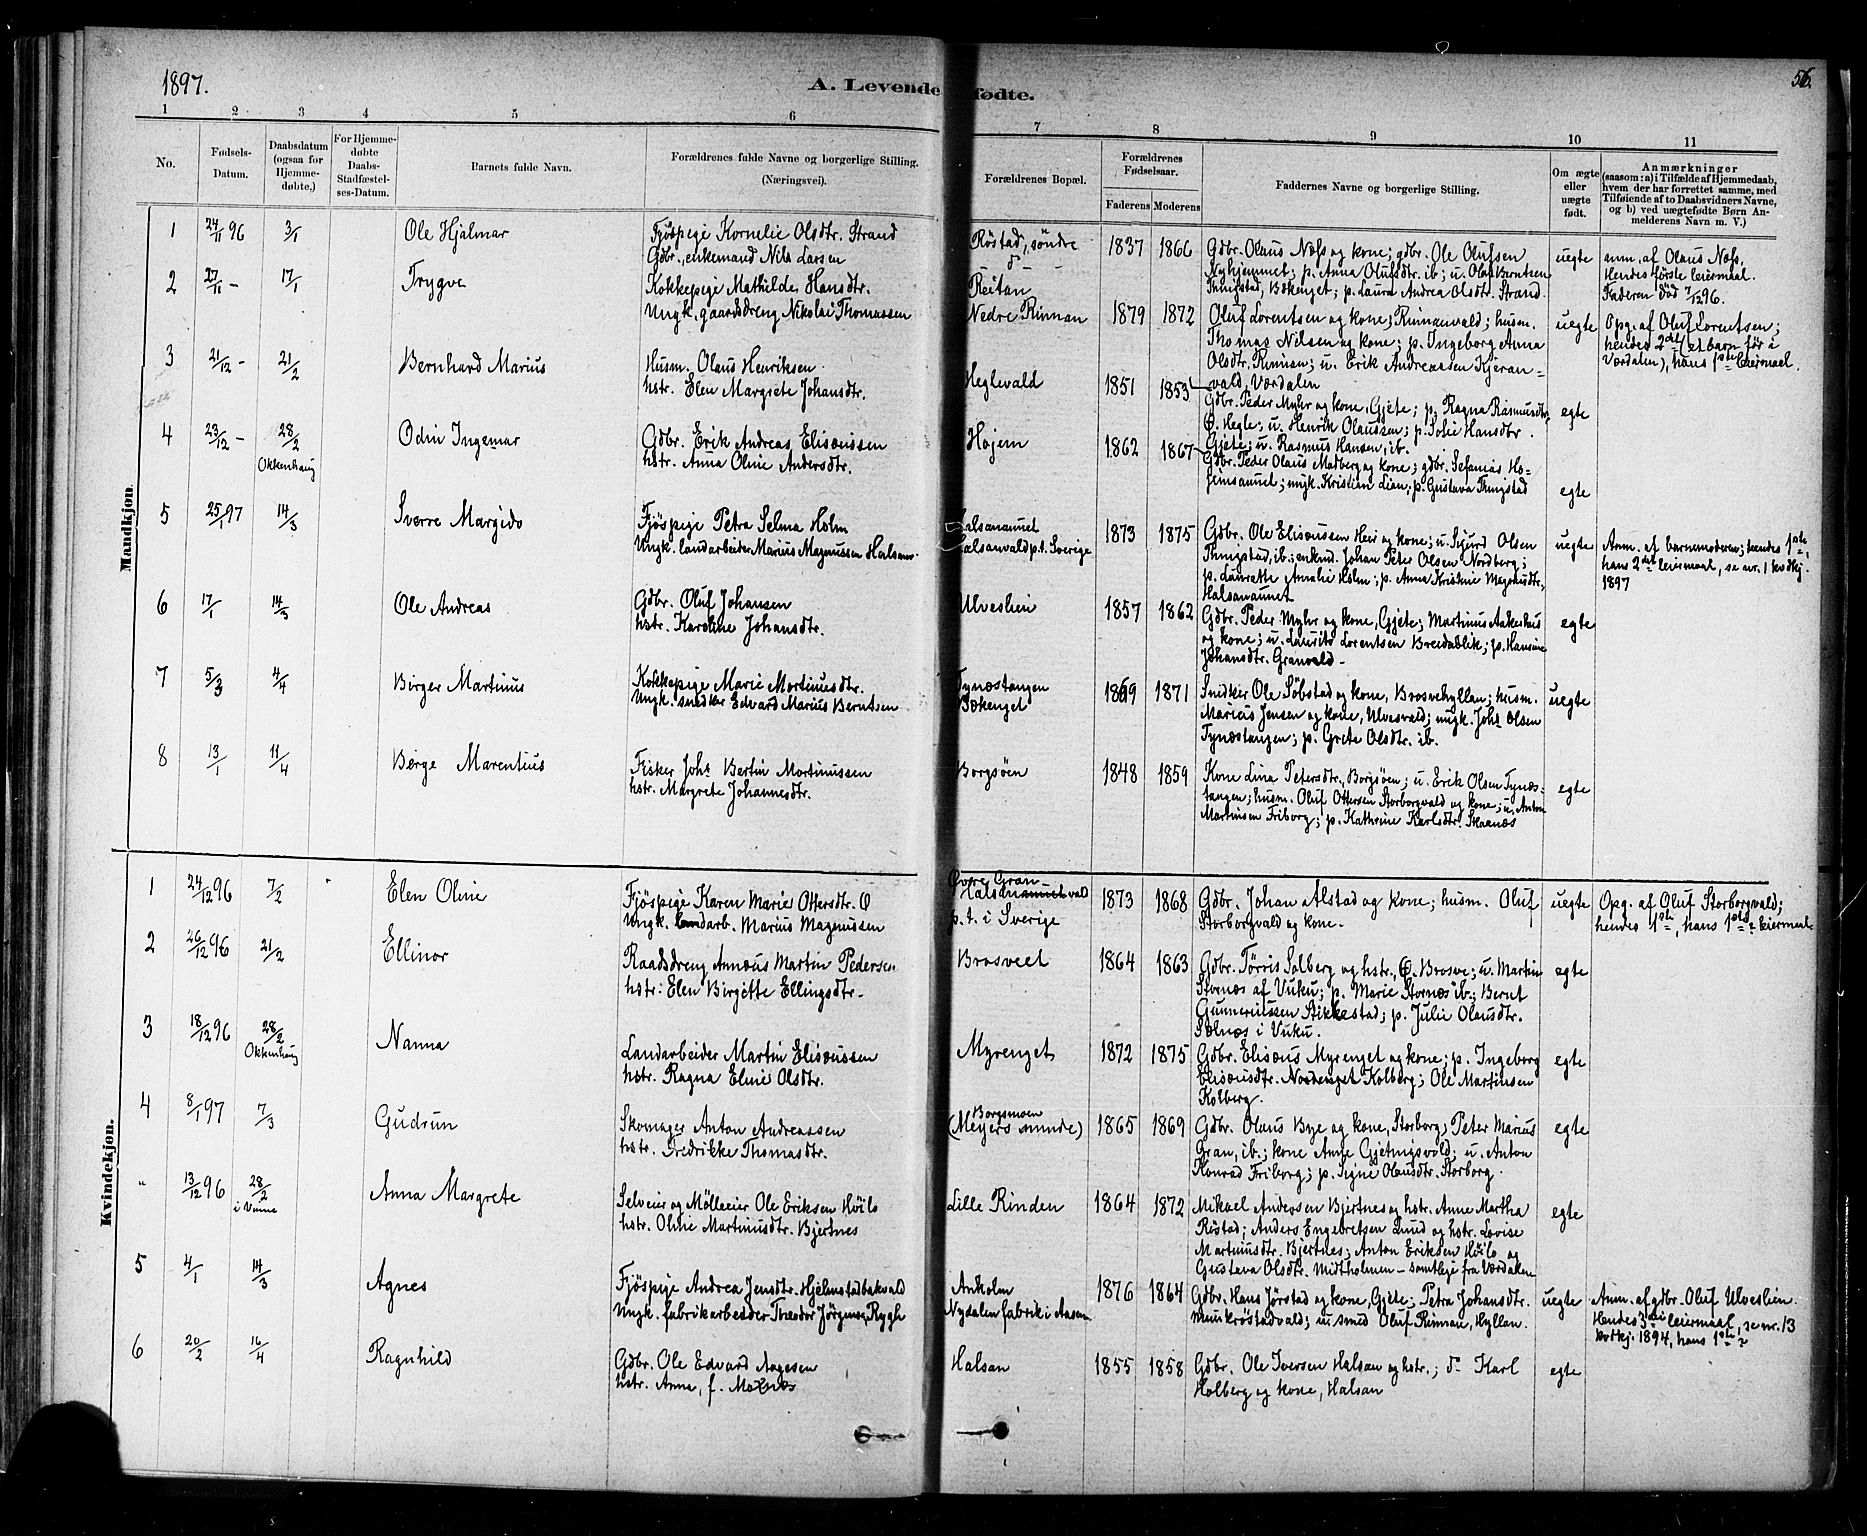 1897.
A. Levende fødte.
56.
1 2 3 4 5 6 7 8 9 10 11
No.
Fødsels-Datum.
Daabsdatum (ogsaa for Hjemme-døbte.)
For Hjemme-døbte Daabs-Stadfæstel-ses-Datum.
Barnets fulde Navn.
Forældrenes fulde Navne og borgerlige Stilling. (Næringsvei).
Forældrenes Bopæl.
Forældrenes Fødselsaar.
Faderens Moderens
Faddernes Navne og borgerlige Stilling.
Om ægte eller uægte født.
Anmærkninger (saasom: a) i Tilfælde af Hjemmedaab, hvem der har forrettet samme, med Tilføiende af to Daabsvidners Navne, og b) ved uægtefødte Børn An-melderens Navn m. V.)
Mandkjøn.
1 24/11 96 3/1 Ole Hjalmar
Fjöspige Kornelie Olsdtr. Strand
Gdbr., enkemand Nils Larsen
Röstad, söndre
1837 1866
Gdbr. Olaus Næss og kone; gdbr. Ole Olufsen
Nyhjemmet; p. Anna Olufsdtr. ib; u. Olaf Berntsen
Tingstad, Bækenget; p. Laura Andrea Olsdtr. Strand.
uegte
anm. af Olaus Næss.
Hendes første leiermaal.
Faderen död 7/12 96.
2 27/11 - 17/1 Trygve
Kokkepige Mathilde Hansdtr.
Ungk., gaardsdreng Nikolai Thomassen
Reitan
Nedre Rinnan
1879 1872
Oluf Lorentsen og kone, Rinnanvald; husm.
Thomas Nilsen og kone; p. Ingeborg Anna
Olsdtr. Rinnan; u. Erik Andreassen Kjeran=
vald, Værdalen
uegte
Opg. af Oluf Lorentsen;
hendes 2det (et barn før i
Værdalen), hans 1ste leiermaal.
3 21/12 - 21/2 Bernhard Marius
Husm. Olaus Henriksen
hstr. Elen Margrete Johansdtr.
Heglevald
1851 1853
Gdbr. Peder Myhr og kone, Gjete; p. Ragna Rasmusdtr.
Ø. Hegle; u. Henrik Olaussen; p. Sofie Hansdtr.
Gjete; u. Rasmus Hansen, ib.
egte
4 23/12 - 28/2 Okkenhaug Odin Ingemar
Gdbr. Erik Andreas Elisæussen
hstr. Anna Oline Andersdtr.
Hojem
1862 1867
Gdbr. Peder Olaus Madberg og kone; gdbr. Sefanias Ho-
jemsaunet; ungk. Kristian Lian; p. Gustava Tingstad
egte
5 25/1 97 14/3 Sverre Margido
Fjöspige Petra Selma Holm
Ungk. landarbeider Marius Magnussen Halsanv.
Halsanaunet
Halsanvald p. t. Sverige
1873 1875
Gdbr. Ole Elisæussen Heir og kone; u. Sigurd Olsen
Tingstad, ib.; enkmd. Johan Peter Olsen Nordberg;
p. Laurette Amalie Holm; p. Anna Kristine Magnusdtr.
Halsanaunet
uegte
Anm. af barnemoderen; hendes 1ste,
hans 2det leiermaal, se nr. 1 kvdkj.
1897
6 17/1 14/3 Ole Andreas
Gdbr. Oluf Johansen
hstr. Karoline Johansdtr.
Ulveslien
1857 1862
Gdbr. Peder Myhr og kone, Gjete; Martinus Aakerhus
og kone; u. Laurits Lorentsen Breidablik; p. Hansine
Johansdtr. Granvald -
egte
7 5/3 4/4 Birger Martinus
Kokkepige Marie Martinusdtr.
Ungk. snedker Edvard Marius Berntsen
Tynæstangen
Bækenget
1869 1871
Snedker Ole Söbstad og kone, Brosvehyllan; husm.
Marius Jensen og kone, Ulvesvald; ungk. Johs Olsen
Tynæstangen; p. Grete Olsdtr. ib.
uegte
8 13/1 11/4 Børge Marentius
Fisker Johs Bertin Martinussen
hstr. Margrete Johannesdtr.
Borgsöen
1848 1859
Kone Lina Petersdtr., Borgsöen; u. Erik Olsen Tynæs-
tangen; husm. Oluf Ottersen Storborgvald og kone; u. Anton
Martinsen Friborg; p. Kathrine Karlsdtr. Skaanæs
egte
Kvindekjøn.
1 24/12 96 7/2 Elen Oline
Fjöspige Karen Marie Ottersdtr. Ø
Ungk. landarb. Marius Magnussen
Øvre Gran
Halsanaunet vald
p. t. i Sverige
1873 1868
Gdbr. Johan Alstad og kone; husm. Oluf
Storborgvald og kone.
uegte
Opg. af Oluf Storborgvald;
hendes 1ste, hans 1ste leiermaal
2 26/12 96 21/2 Ellinor
Raadsdreng Annæus Martin Pedersen
hstr. Elen Birgitte Ellingsdtr.
Brosveet
1864 1863
Gdbr. Tørris Salberg og hstr., Ø. Brosve; u. Martin
Stornæs af Vuku; p. Marie Stornæs ib.; Bernt
Gunneriussen Stikkestad; p. Julie Olausdtr.
Sølnæs i Vuku.
egte
3 18/12 96 28/2 Okkenhaug Nanna
Landarbeider Martin Elisæussen
hstr. Ragna Eline Olsdtr.
Myrenget
1872 1875
Gdbr. Elisæus Myrenget og kone; p. Ingeborg
Elisæusdtr. Nordenget Kolberg; Ole Martinsen
Kolberg.
egte
4 8/1 97 7/3 Gudrun
Skomager Anton Andreassen
hstr. Fredrikke Thomasdtr.
Borgsmoen
(Meyers minde)
1865 1869
Gdbr. Olaus Bye og kone, Storborg; Peter Marius
Gran, ib.; kone Anne Gjetingsvold; u. Anton
Konrad Friborg; p. Signe Olausdtr. Storborg.
egte
" 13/12 96 28/2 i Vinne Anna Margrete
Selveier og Mölleeier Ole Eriksen Höilo
hstr. Oline Martinusdtr. Bjertnes
Lille Rinden
1864 1872
Mikael Andersen Bjertnes og hstr. Anne Martha
Röstad; Anders Engebretsen Lund og hstr. Lovise
Martinusdtr. Bjertnes; Anton Eriksen Höilo og
Gustava Olsdtr. Midtholmen - samtlige fra Værdalen
egte
5 4/1 14/3 Agnes
Fjöspige Andrea Jensdtr. Hjelmstadbakvald
Ungk. fabrikarbeider Theodor Jörgensen Rygh
Ankolm
Nydalen fabrik i Aasen
1876 1864
Gdbr. Hans Jørstad og kone, Gjete; Petra Johansdtr.
Munkröstadvald; u. smed Oluf Rinnan, Hyllan.
uegte
Anm. af gdbr. Oluf Ulveslien.
Hendes 3die leiermaal, se nr. 13
kvdkj. 1894, hans 1ste
6 20/2 16/4 Ragnhild
Gdbr. Ole Edvard Aagesen
hstr. Anna, f. Moxnæs
Halsan
1855 1858
Gdbr. Ole Iversen Halsan og hstr.; do Karl
Holberg og kone, Halsan
egte